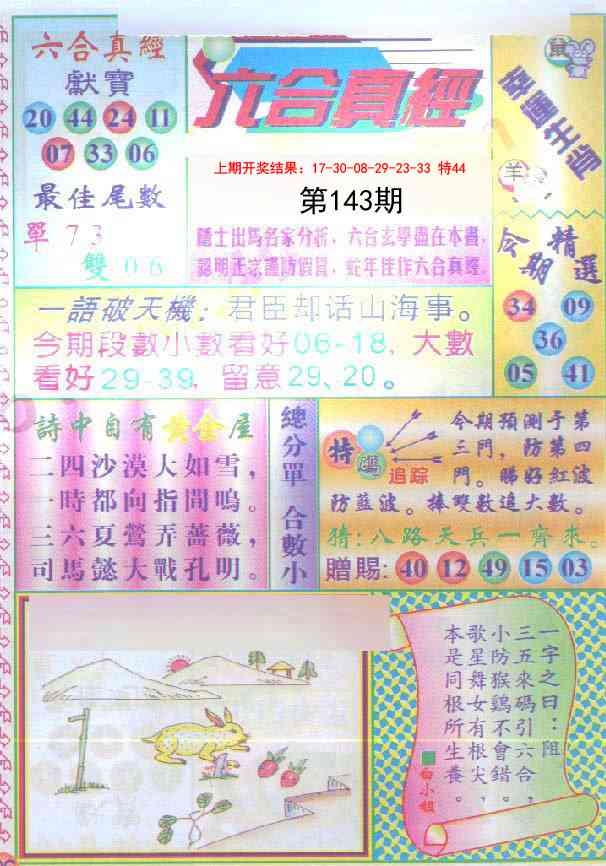 六合真經
獻寶
20 44 24 11
07 33 06
最佳尾數
單 7 3
雙 0 6
六合真經
上期开奖结果：17-30-08-29-23-33 特44
第143期
隱士出馬名家分析，六合玄學盡在本書，
認明正宗謹防假冒，蛇年佳作六合真經。
鼠
幸運生肖
羊
今期
精選
34 09
36
05 41
一語破天機：君臣却话山海事。
今期段數小數看好06-18，大數
看好29-39，留意29、20。
詩中自有黃金屋
二四沙漠大如雪，
一時都向指間鳴。
三六夏鶯弄薔薇，
司馬懿大戰孔明。
總分單 合數小
特碼
追踪
今期預測于第
三門，防第四
門。睇好紅波
防藍波。捧雙數追大數。
猜：八路天兵一齊來。
贈賜：40 12 49 15 03
一字之曰：阻
三五來碼引六合，
小防猴鷄不會錯，
歌星舞女有根尖，
本是同根所生養。
白小姐